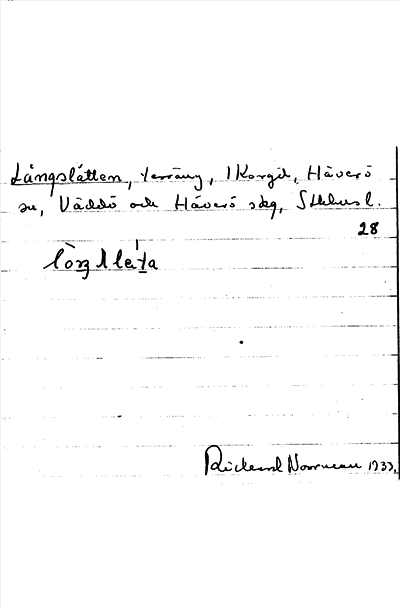 Långslätten, terräng, i Korgil, Häverö
sn, Väddö och Häverö skg, Sthlms l.
28
Rickard Norrman 1933.